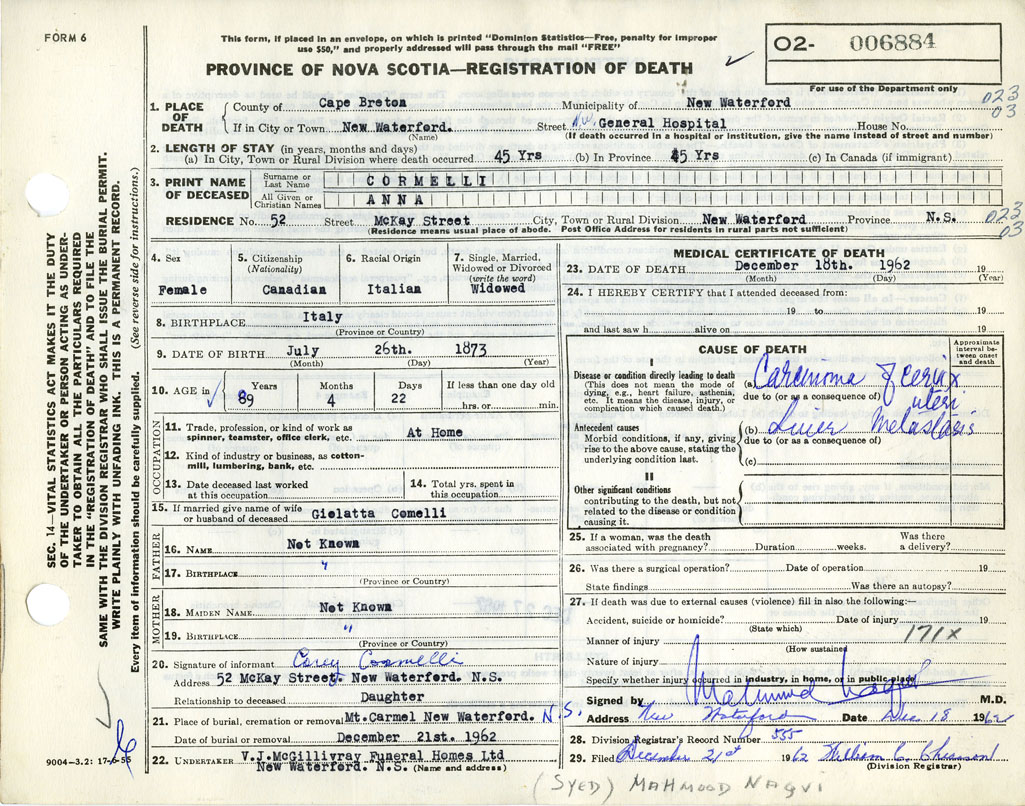 FORM 6
This form, if placed in an envelope, on which is printed "Dominion Statistics—Free, penalty for improper
use $50," and properly addressed will pass through the mail "FREE"
O2- 006884
PROVINCE OF NOVA SCOTIA—REGISTRATION OF DEATH
For use of the Department only
023
03
1. PLACE OF DEATH
County of Cape Breton Municipality of New Waterford
If in City or Town New Waterford. Street N.W. General Hospital House No.
(Name) (If death occurred in a hospital or institution, give the name instead of street and number)
2. LENGTH OF STAY (in years, months and days)
(a) In City, Town or Rural Division where death occurred 45 Yrs (b) In Province 45 Yrs (c) In Canada (if immigrant)
3. PRINT NAME OF DECEASED
Surname or Last Name CORMELLI
All Given or Christian Names ANNA
RESIDENCE No. 52 Street McKay Street City, Town or Rural Division New Waterford Province N.S. 023
03
(Residence means usual place of abode. Post Office Address for residents in rural parts not sufficient)
4. Sex
Female
5. Citizenship
(Nationality)
Canadian
6. Racial Origin
Italian
7. Single, Married,
Widowed or Divorced
(write the word)
Widowed
8. BIRTHPLACE Italy
(Province or Country)
9. DATE OF BIRTH July 26th. 1873
(Month) (Day) (Year)
10. AGE in
Years Months Days If less than one day old
89 4 22 hrs. or min.
OCCUPATION
11. Trade, profession, or kind of work as
spinner, teamster, office clerk, etc. At Home
12. Kind of industry or business, as cotton-
mill, lumbering, bank, etc.
13. Date deceased last worked
at this occupation
14. Total yrs. spent in
this occupation
15. If married give name of wife
or husband of deceased Giolatta Comelli
FATHER
16. NAME Not Known
17. BIRTHPLACE "
(Province or Country)
MOTHER
18. MAIDEN NAME Not Known
19. BIRTHPLACE "
(Province or Country)
20. Signature of informant Cosmelli
Address 52 McKay Street, New Waterford. N.S.
Relationship to deceased Daughter
21. Place of burial, cremation or removal Mt.Carmel New Waterford. N.S.
Date of burial or removal December 21st. 1962
22. UNDERTAKER V.J.McGillivray Funeral Homes Ltd
New Waterford. N.S. (Name and address)
MEDICAL CERTIFICATE OF DEATH
23. DATE OF DEATH December 18th. 1962 19
(Month) (Day) (Year)
24. I HEREBY CERTIFY that I attended deceased from:
19 to 19
and last saw h alive on 19
CAUSE OF DEATH
Approximate
interval be-
tween onset
and death
I
Disease or condition directly leading to death
(This does not mean the mode of
dying, e.g., heart failure, asthenia,
etc. It means the disease, injury, or
complication which caused death.)
(a) Carcinoma of cervix
due to (or as a consequence of) uteri
Antecedent causes
Morbid conditions, if any, giving
rise to the above cause, stating the
underlying condition last.
(b) Liver Metastasis
due to (or as a consequence of)
(c)
II
Other significant conditions
contributing to the death, but not
related to the disease or condition
causing it.
25. If a woman, was the death
associated with pregnancy? Duration weeks. Was there
a delivery?
26. Was there a surgical operation? Date of operation 19
State findings Was there an autopsy?
27. If death was due to external causes (violence) fill in also the following:—
Accident, suicide or homicide? Date of injury 19
(State which)
171X
Manner of injury
(How sustained)
Nature of injury
Specify whether injury occurred in industry, in home, or in public place
Signed by Mahmood Naqvi M.D.
Address New Waterford Date Dec. 18 1962
28. Division Registrar's Record Number 555
29. Filed December 21st 1962 William C.
(Division Registrar)
(SYED) MAHMOOD NAQVI
SEC. 14—VITAL STATISTICS ACT MAKES IT THE DUTY
OF THE UNDERTAKER OR PERSON ACTING AS UNDER-
TAKER TO OBTAIN ALL THE PARTICULARS REQUIRED
IN THE "REGISTRATION OF DEATH" AND TO FILE THE
SAME WITH THE DIVISION REGISTRAR WHO SHALL ISSUE THE BURIAL PERMIT.
WRITE PLAINLY WITH UNFADING INK. THIS IS A PERMANENT RECORD.
Every item of information should be carefully supplied. (See reverse side for instructions.)
9004-3.2: 17-6-55